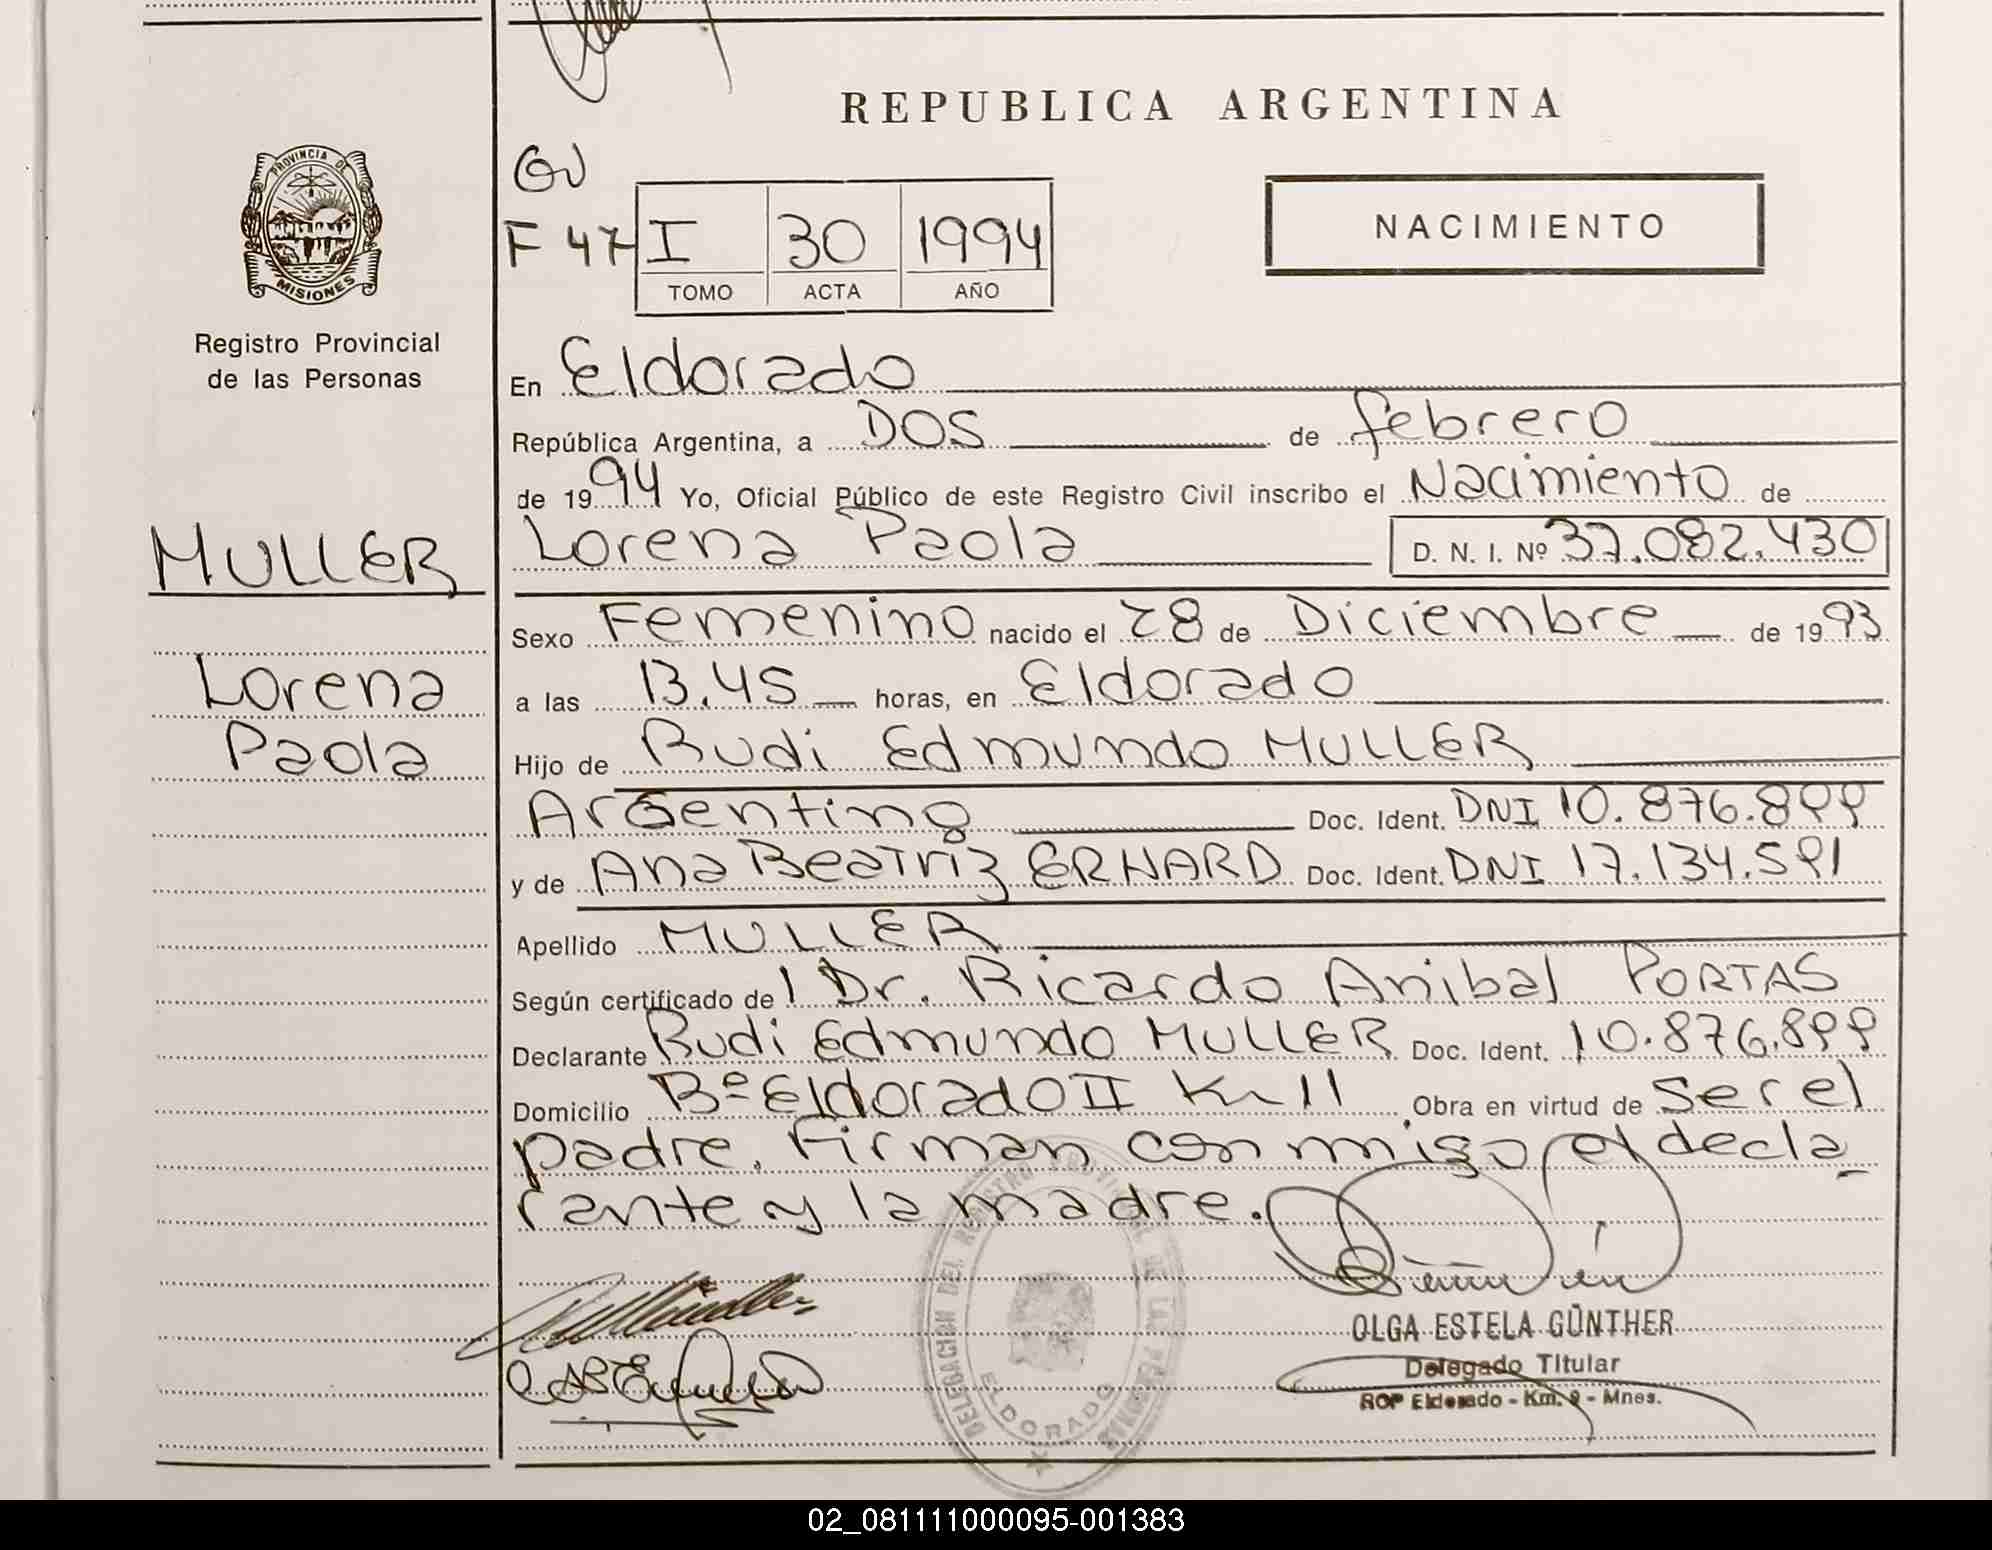 REPUBLICA ARGENTINA
PROVINCIA DE
MISIONES
Registro Provincial
de las Personas
MULLER
Lorena
Paola
GU
F 47
I 30 1994
TOMO ACTA AÑO
NACIMIENTO
En Eldorado
República Argentina, a DOS de febrero
de 1994 Yo, Oficial Público de este Registro Civil inscribo el Nacimiento de
Lorena Paola D. N. I. Nº 37.082.430
Sexo Femenino nacido el 28 de Diciembre de 1993
a las 13.45 horas, en Eldorado
Hijo de Rudi Edmundo MULLER
Argentino Doc. Ident. DNI 10.876.899
y de Ana Beatriz ERHARD Doc. Ident. DNI 17.134.591
Apellido MULLER
Según certificado de l Dr. Ricardo Anibal PORTAS
Declarante Rudi Edmundo MULLER Doc. Ident. 10.876.899
Domicilio Bº Eldorado II Km 11 Obra en virtud de ser el
padre. Firman conmigo el decla
rante y la madre.
DELEGACION DEL REGISTRO PROVINCIAL DE LAS PERSONAS
ELDORADO
OLGA ESTELA GÜNTHER
Delegado Titular
ROP Eldorado - Km. 9 - Mnes.
02_081111000095-001383